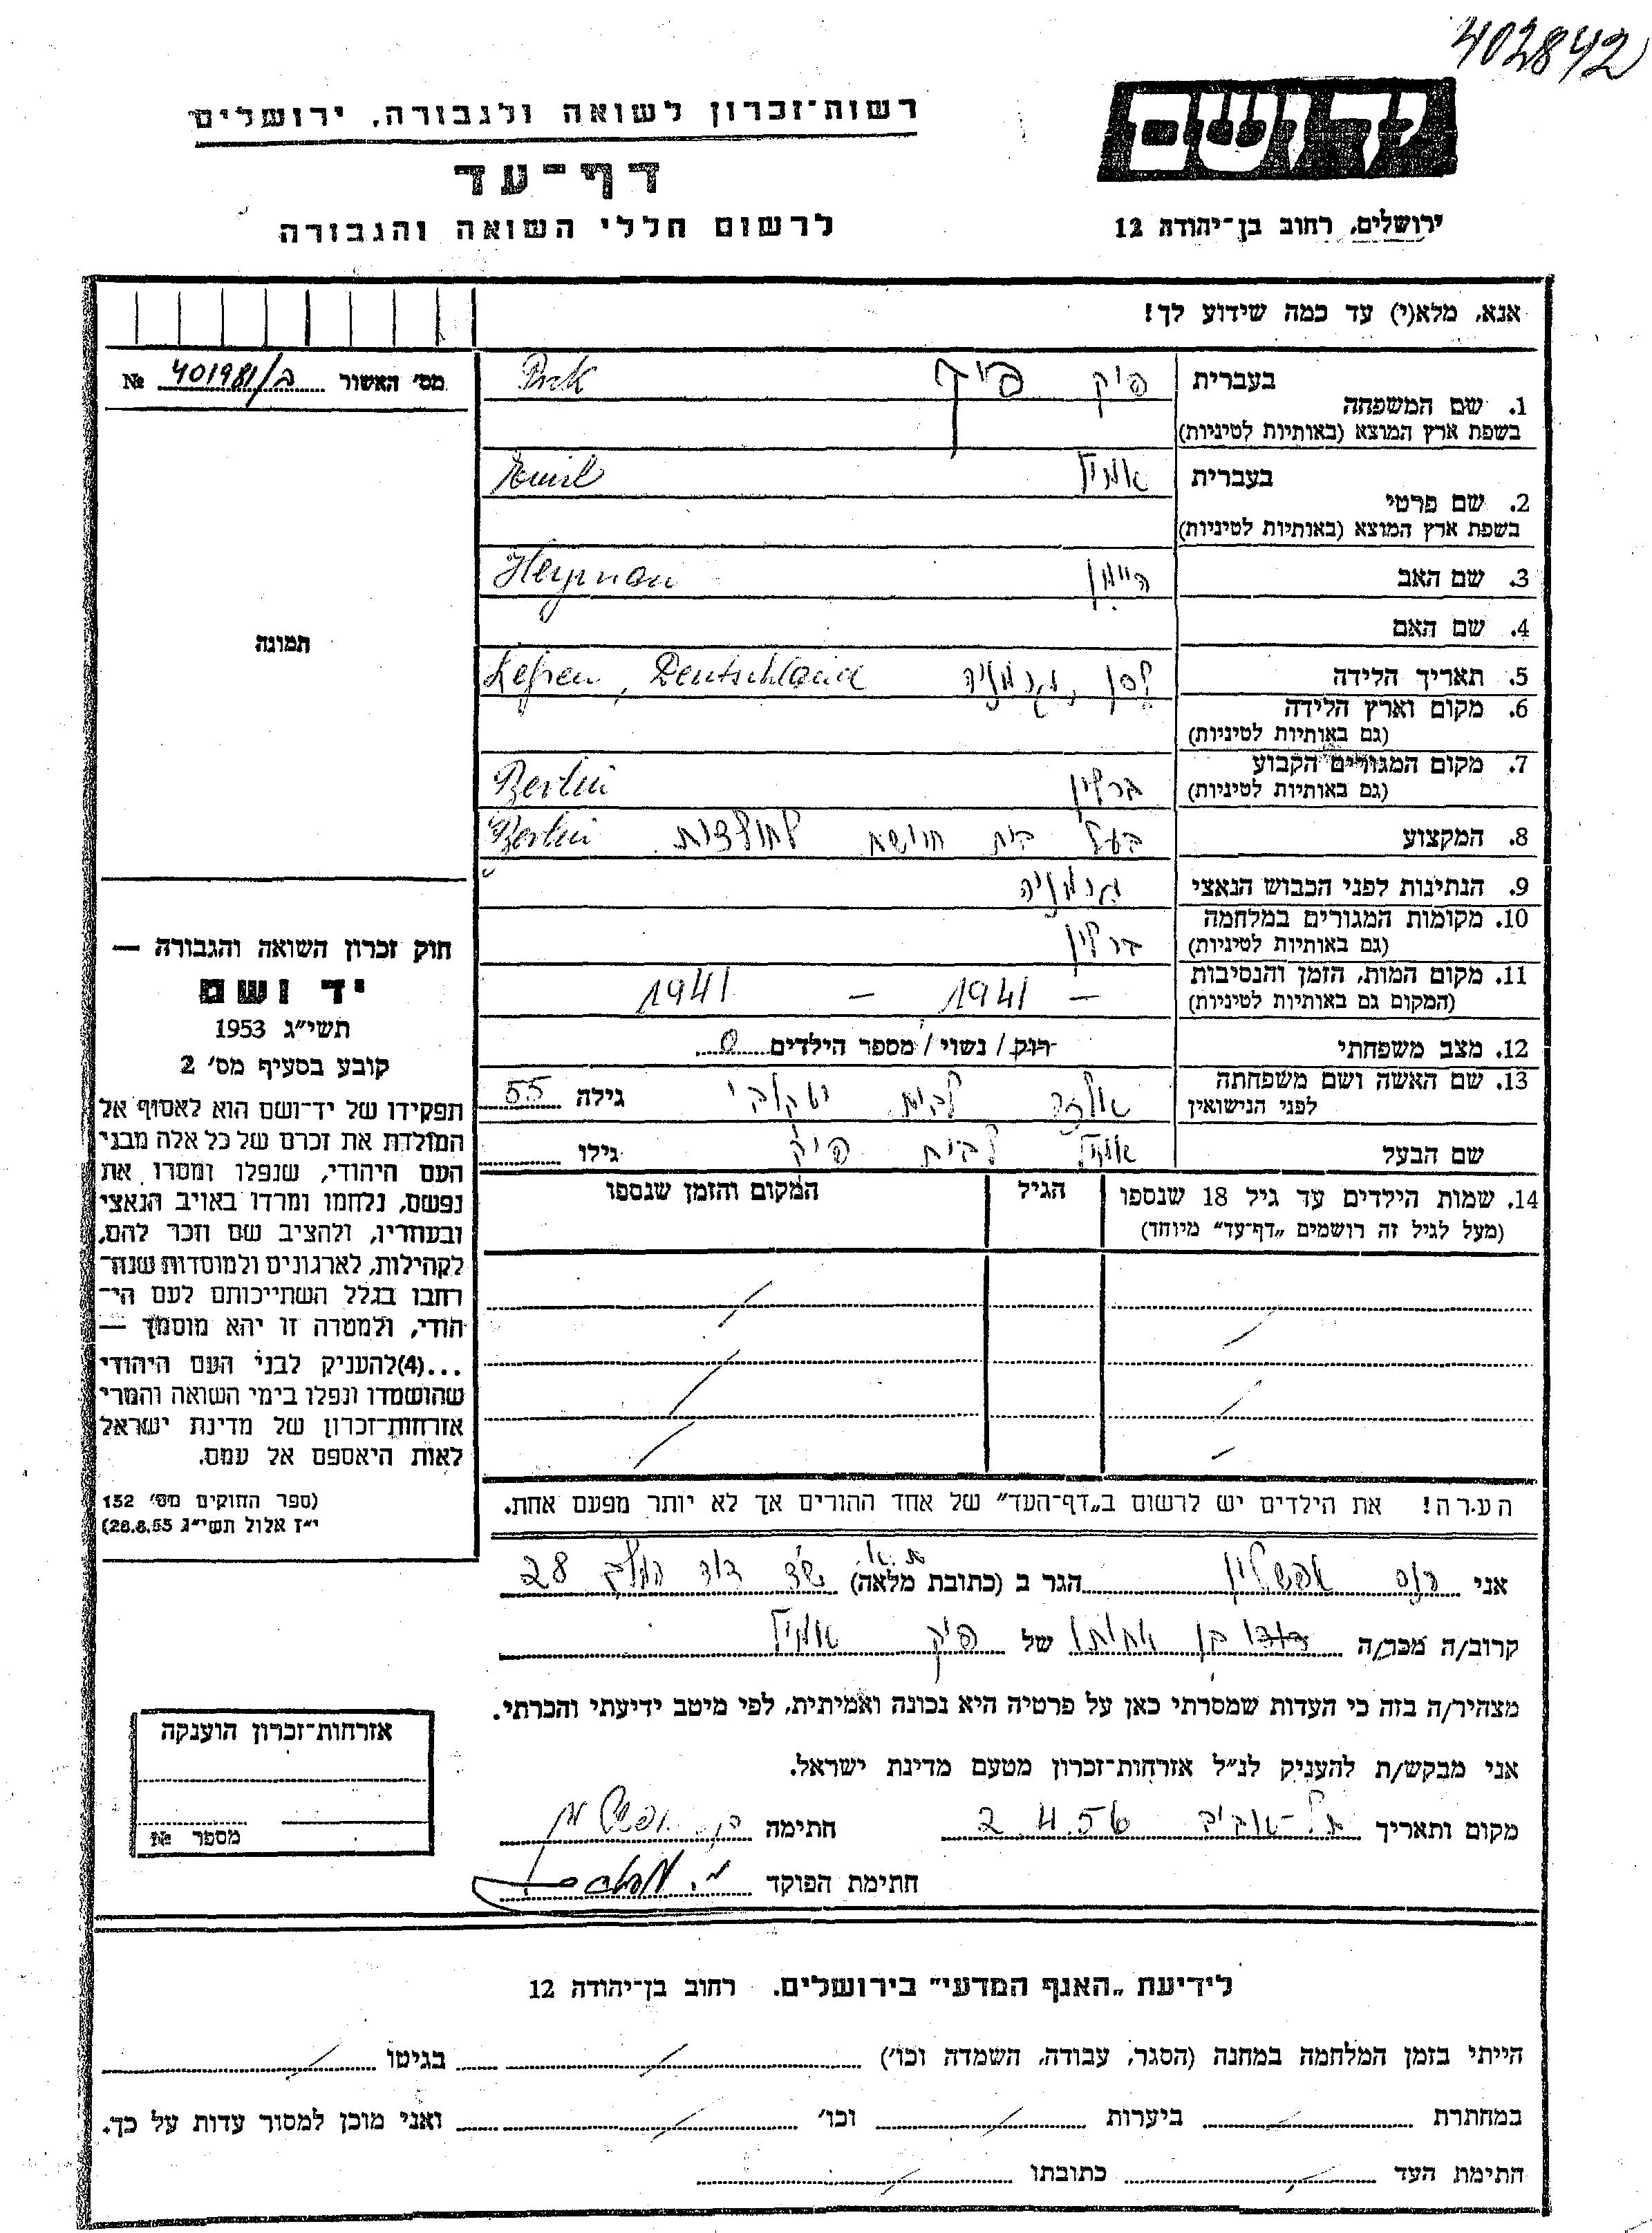 402842
יד ושם
רשות־זכרון לשואה ולגבורה, ירושלים
דף־עד
ירושלים, רחוב בן־יהודה 12
לרשום חללי השואה והגבורה
אנא, מלא(י) עד כמה שידוע לך!
מס׳ האשור 401981/ב №
תמונה
1. שם המשפחה
בעברית פיק פיק Pick
בשפת ארץ המוצא (באותיות לטיניות)
בעברית אמיל Emil
2. שם פרטי
בשפת ארץ המוצא (באותיות לטיניות)
3. שם האב היימן Heyman
4. שם האם
5. תאריך הלידה גרמניה Deutschland
6. מקום וארץ הלידה
(גם באותיות לטיניות)
7. מקום המגורים הקבוע
(גם באותיות לטיניות) ברלין Berlin
8. המקצוע בעל בית חרושת לחולצות Berlin
9. הנתינות לפני הכבוש הנאצי גרמניה
10. מקומות המגורים במלחמה
(גם באותיות לטיניות) ברלין
11. מקום המות, הזמן והנסיבות
(המקום גם באותיות לטיניות) – 1941 – 1941
12. מצב משפחתי רוק / נשוי / מספר הילדים 0
13. שם האשה ושם משפחתה
לפני הנישואין לבית יעקובי גילה 55
שם הבעל אמיל לבית פיק גילו
14. שמות הילדים עד גיל 18 שנספו הגיל המקום והזמן שנספו
(מעל לגיל זה רושמים „דף־עד” מיוחד)
הערה! את הילדים יש לרשום ב„דף־העד” של אחד ההורים אך לא יותר מפעם אחת.
חוק זכרון השואה והגבורה —
יד ושם
תשי״ג 1953
קובע בסעיף מס׳ 2
תפקידו של יד־ושם הוא לאסוף אל
המולדת את זכרם של כל אלה מבני
העם היהודי, שנפלו ומסרו את
נפשם, נלחמו ומרדו באויב הנאצי
ובעוזריו, ולהציב שם וזכר להם,
לקהילות, לארגונים ולמוסדות שנה־
רחבו בגלל השתייכותם לעם הי־
הודי, ולמטרה זו יהא מוסמך —
...(4)להעניק לבני העם היהודי
שהושמדו ונפלו בימי השואה והמרי
אזרחות־זכרון של מדינת ישראל
לאות היאספם אל עמם.
(ספר החוקים מס׳ 132
י״ז אלול תשי״ג 28.8.53)
אני הנס אפשטיין הגר ב (כתובת מלאה) ת.א. שד דוד המלך 28
קרוב/ה מכר/ה בן אחותו של פיק אמיל
מצהיר/ה בזה כי העדות שמסרתי כאן על פרטיה היא נכונה ואמיתית, לפי מיטב ידיעתי והכרתי.
אני מבקש/ת להעניק לנ״ל אזרחות־זכרון מטעם מדינת ישראל.
מקום ותאריך תל־אביב 2.4.56 חתימה
חתימת הפוקד
אזרחות־זכרון הוענקה
מספר №
לידיעת „האגף המדעי” בירושלים. רחוב בן־יהודה 12
הייתי בזמן המלחמה במחנה (הסגר, עבודה, השמדה וכו׳) בגיטו
במחתרת ביערות וכו׳ ואני מוכן למסור עדות על כך.
חתימת העד כתובתו